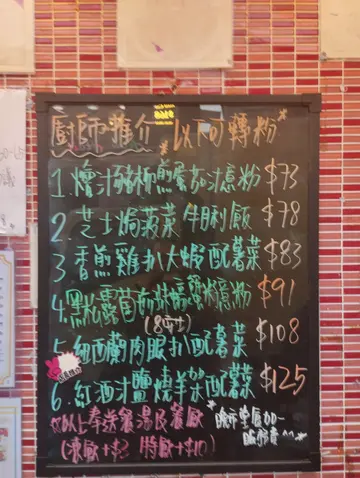 廚師推介 *以下可轉粉*
1. 燴汁豬柳煎蛋茄汁意粉 $73
2. 芝士焗菠菜牛脷飯 $78
3. 香煎雞扒大蝦配薯菜 $83
4. 黑松露菌 意粉 $91
(8安士)
5. 紐西蘭肉眼扒配薯菜 $108
6. 紅酒汁鹽燒羊架配薯菜 $125
以上奉送餐湯及餐飲
(凍飲+$3 特飲+$10)
晚市堂食加一